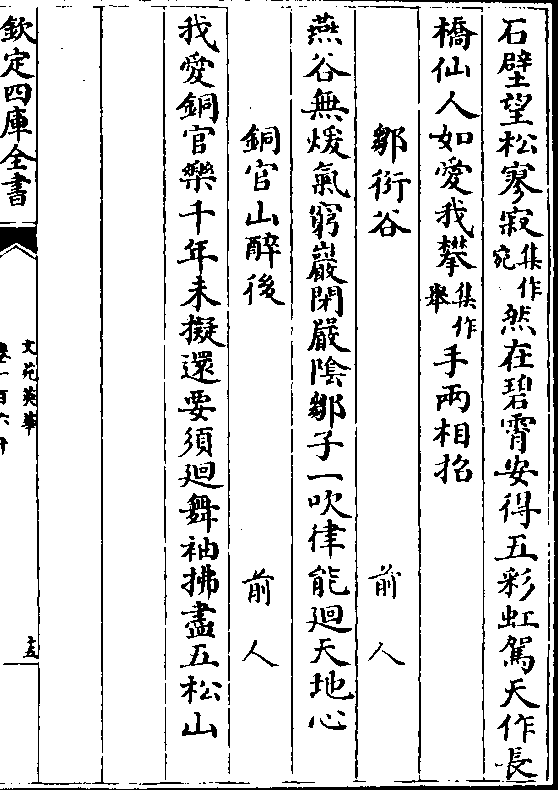 石壁望松寥寂集作宛然在碧霄安得五彩虹駕天作長
橋仙人如愛我攀集作舉手兩相招
鄒衍谷　前人
燕谷無煖氣窮巖閉嚴陰鄒子一吹律能廻天地心
銅官山醉後　前人
我愛銅官樂千年未擬還要須廻舞袖拂盡五松山
欽定四庫全書
文苑英華
卷一百六十